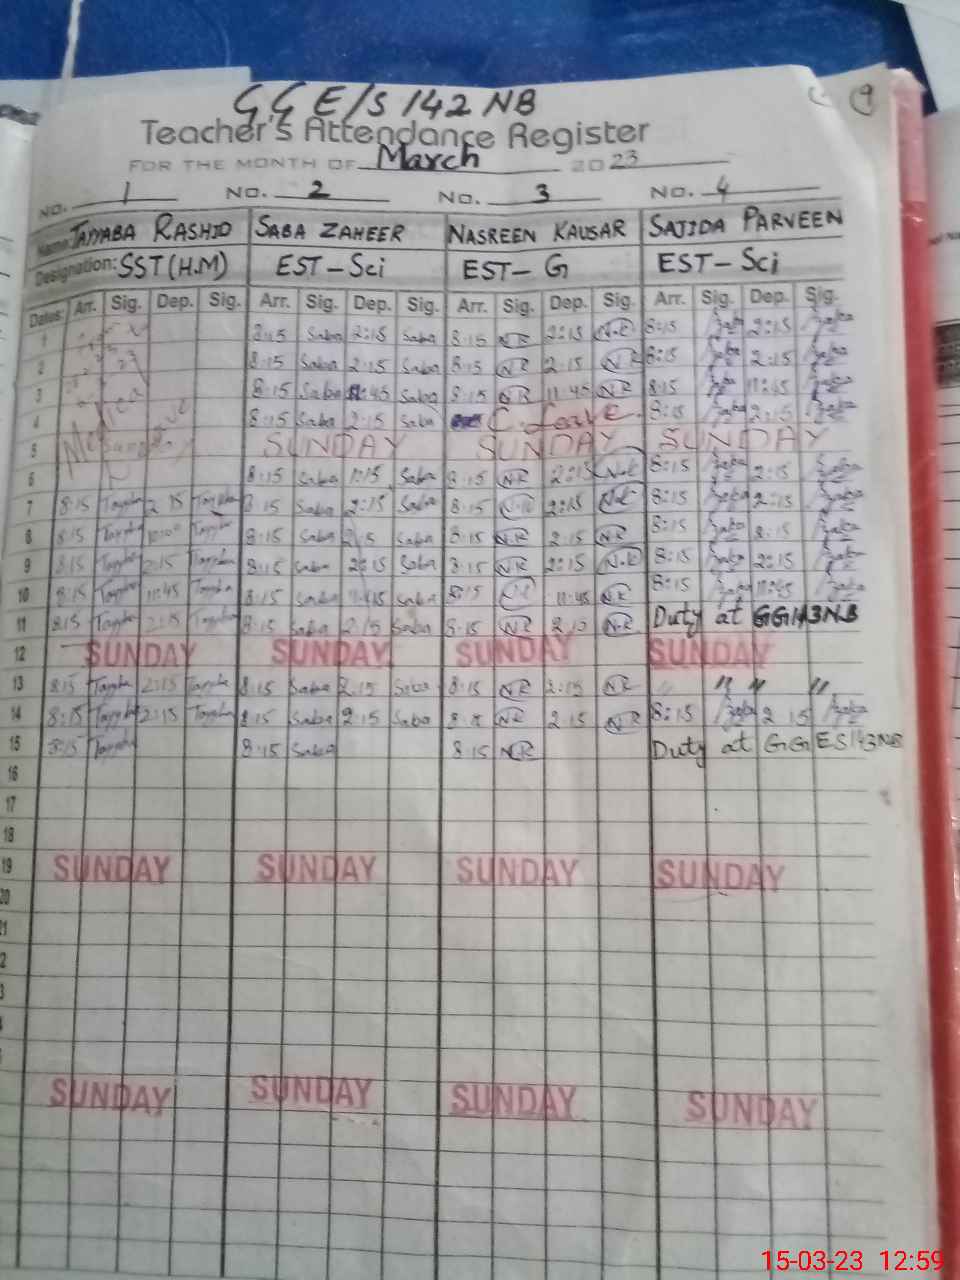 GGE/S 142 NB
Teacher's Attendance Register
FOR THE MONTH OF March 2023
No. 1 No. 2 No. 3 No. 4
Name: TAYYABA RASHID SABA ZAHEER NASREEN KAUSAR SAJIDA PARVEEN
Designation: SST (H.M) EST-Sci EST-G EST-Sci
Dates: Arr. Sig. Dep. Sig. Arr. Sig. Dep. Sig. Arr. Sig. Dep. Sig. Arr. Sig. Dep. Sig.
1 8:15 Saba 2:15 Saba 8:15 NR 2:15 N.R 8:15 2:15
2 8:15 Saba 2:15 Saba 8:15 NR 2:15 NR 8:15 2:15
3 8:15 Saba 11:45 Saba 8:15 NR 11:45 NR 8:15 11:45
4 8:15 Saba 2:15 Saba C. Leave 8:15 2:15
5 SUNDAY SUNDAY SUNDAY
6 8:15 Saba Saba 8:15 NR 2:15 N.R 8:15 2:15
7 8:15 Tayyba 2 15 Tayyba 8:15 Saba 2:15 Saba 8:15 N.R 2:15 N.R 8:15 2:15
8 8:15 Tayyba Tayyba 8:15 Saba Saba 8:15 N.R 2:15 NR 8:15
9 8:15 Tayyba 2:15 Tayyba 8:15 Saba 2:15 Saba 8:15 NR 2:15 N.R 8:15 2:15
10 8:15 Tayyba 11:45 Tayyba 8:15 Saba Saba 8:15 11:45 NR 8:15 11:45
11 8:15 Tayyba 2:15 Tayyba 8:15 Saba 2:15 Saba 8:15 NR NR Duty at GG143NB
12 SUNDAY SUNDAY SUNDAY SUNDAY
13 8:15 Tayyba 2:15 Tayyba 8:15 Saba 2:15 Saba 8:15 NR 2:15 NR " " " "
14 8:15 Tayyba 2:15 Tayyba 8:15 Saba 2:15 Saba 8:15 NR 2:15 NR 8:15 2 15
15 8:15 Tayyba 8:15 Saba 8:15 NR Duty at GGES143NB
16
17
18
19 SUNDAY SUNDAY SUNDAY SUNDAY
20
SUNDAY SUNDAY SUNDAY SUNDAY
15-03-23 12:59